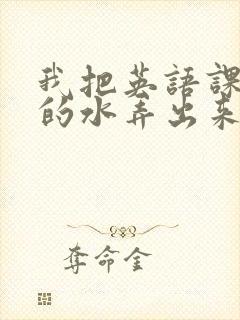 我把英語課
的水弄出來
奪命金